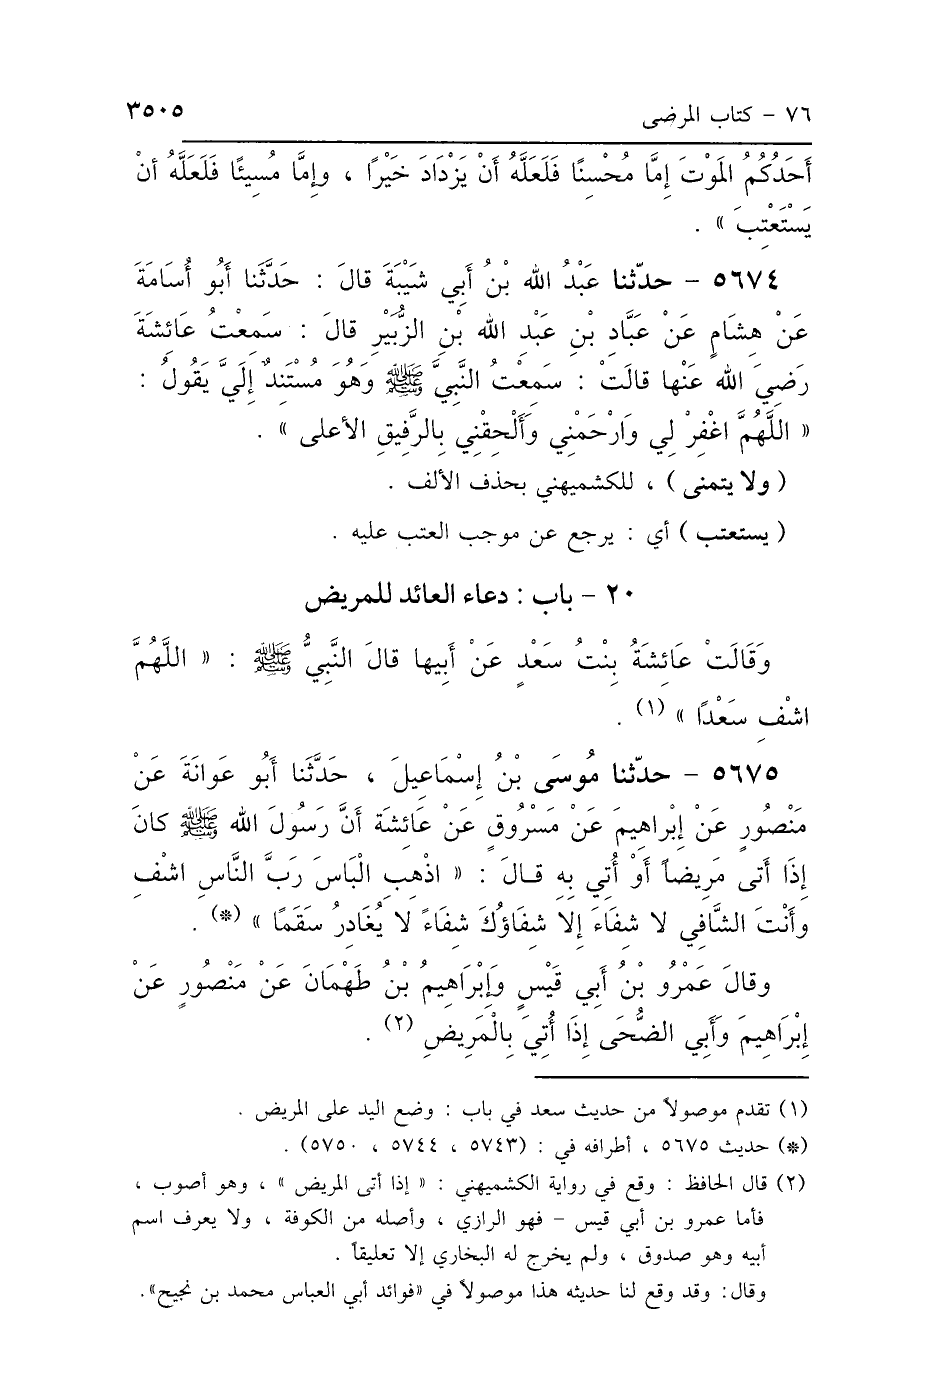 ٧٦ - كتاب المرضى ٣٥٠٥
أَحَدُكُمُ المَوْتَ إِمَّا مُحْسِنًا فَلَعَلَّهُ أَنْ يَزْدَادَ خَيْرًا ، وإِمَّا مُسِيئًا فَلَعَلَّهُ أنْ
يَسْتَعْتِبَ » .
٥٦٧٤ - حدّثنا عَبْدُ الله بْنُ أَبِي شَيْبَةَ قالَ : حَدَّثَنا أَبُو أُسَامَةَ
عَنْ هِشَامٍ عَنْ عَبَّادِ بْنِ عَبْدِ الله بْنِ الزُّبَيْرِ قالَ : سَمِعْتُ عَائِشَةَ
رَضِيَ الله عَنْها قالَتْ : سَمِعْتُ النَّبِيَّ ﷺ وَهُوَ مُسْتَنِدٌ إِلَيَّ يَقُولُ :
« اللَّهُمَّ اغْفِرْ لِي وَارْحَمْنِي وأَلْحِقْنِي بِالرَّفِيقِ الأعلى » .
( ولا يتمنى ) ، للكشميهني بحذف الألف .
( يستعتب ) أي : يرجع عن موجب العتب عليه .
٢٠ - باب : دعاء العائد للمريض
وَقَالَتْ عَائِشَةُ بِنْتُ سَعْدٍ عَنْ أَبِيها قالَ النَّبِيُّ ﷺ : « اللَّهُمَّ
اشْفِ سَعْدًا » (١) .
٥٦٧٥ - حدّثنا مُوسَى بْنُ إِسْمَاعِيلَ ، حَدَّثَنا أَبُو عَوانَةَ عَنْ
مَنْصُورٍ عَنْ إِبْراهِيمَ عَنْ مَسْرُوقٍ عَنْ عَائِشَة أَنَّ رَسُولَ الله ﷺ كانَ
إِذَا أَتى مَرِيضاً أَوْ أُتِي بِهِ قـالَ : « اذْهِبِ الْبَاسَ رَبَّ النَّاسِ اشْفِ
وأَنْتَ الشَّافِي لا شفَاءَ إِلا شفَاؤُكَ شفَاءً لا يُغَادِرُ سَقَمًا » (*) .
وقالَ عَمْرُو بْنُ أَبي قَيْسٍ وَإِبْرَاهِيمُ بْنُ طَهْمَانَ عَنْ مَنْصُورٍ عَنْ
إِبْرَاهِيمَ وَأَبِي الضُّحَى إِذَا أُتِيَ بِالْمَرِيضِ (٢) .
(١) تقدم موصولاً من حديث سعد في باب : وضع اليد على المريض .
(*) حديث ٥٦٧٥ ، أطرافه في : (٥٧٤٣ ، ٥٧٤٤ ، ٥٧٥٠) .
(٢) قال الحافظ : وقع في رواية الكشميهني : « إذا أتى المريض » ، وهو أصوب ،
فأما عمرو بن أبي قيس - فهو الرازي ، وأصله من الكوفة ، ولا يعرف اسم
أبيه وهو صدوق ، ولم يخرج له البخاري إلا تعليقاً .
وقال: وقد وقع لنا حديثه هذا موصولاً في «فوائد أبي العباس محمد بن نجيح».